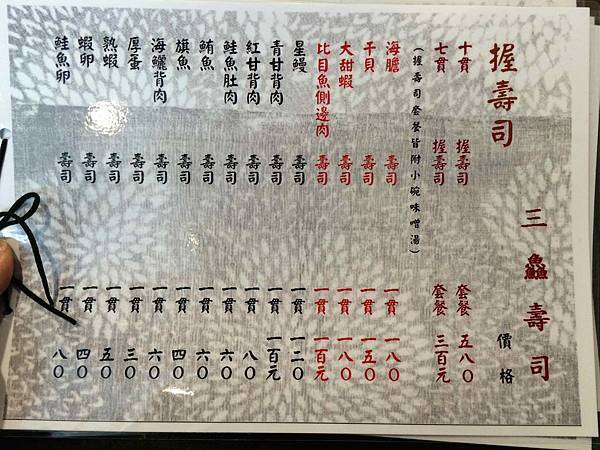 三鱻壽司
握壽司 價格
十貫 握壽司 套餐 五八〇
七貫 握壽司 套餐 三百元
(握壽司套餐皆附小碗味噌湯)
海膽 壽司 一貫 一八〇
干貝 壽司 一貫 一五〇
大甜蝦 壽司 一貫 一八〇
比目魚側邊肉 壽司 一貫 一百元
星鰻 壽司 一貫 一二〇
青甘背肉 壽司 一貫 一百元
紅甘背肉 壽司 一貫 八〇
鮭魚肚肉 壽司 一貫 六〇
鮪魚 壽司 一貫 六〇
旗魚 壽司 一貫 四〇
海鱺背肉 壽司 一貫 六〇
厚蛋 壽司 一貫 三〇
熟蝦 壽司 一貫 五〇
蝦卵 壽司 一貫 四〇
鮭魚卵 壽司 一貫 八〇